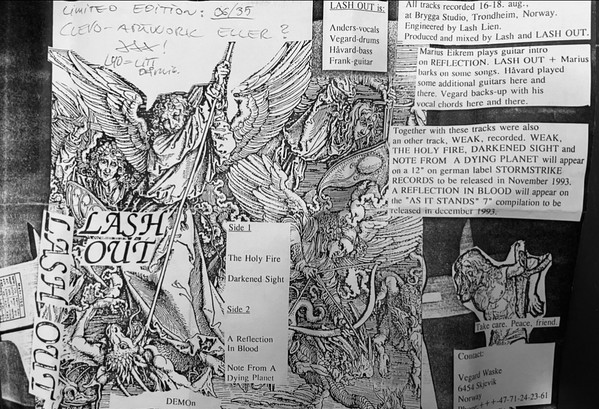 LIMITED EDITION: 06/35
CLEVO-ARTWORK ELLER?
XXX!
LASH OUT is:
Anders-vocals
Vegard-drums
Håvard-bass
Frank-guitar
All tracks recorded 16-18. aug.,
at Brygga Studio, Trondheim, Norway.
Engineered by Lash Lien.
Produced and mixed by Lash and LASH OUT.
Marius Eikrem plays guitar intro
on REFLECTION. LASH OUT + Marius
barks on some songs. Håvard played
some additional guitars here and
there. Vegard backs-up with his
vocal chords here and there.
Together with these tracks were also
an other track, WEAK, recorded. WEAK,
THE HOLY FIRE, DARKENED SIGHT and
NOTE FROM A DYING PLANET will appear
on a 12" on german label STORMSTRIKE
RECORDS to be released in November 1993.
A REFLECTION IN BLOOD will appear on
the "AS IT STANDS" 7" compilation to be
released in december 1993.
LASH OUT
LASH
OUT
Side 1
The Holy Fire
Darkened Sight
Side 2
A Reflection
In Blood
Note From A
Dying Planet
DEMOn
Take care. Peace, friend.
Contact:
Vegard Waske
6454 Skjevik
Norway
+++-47-71-24-23-61